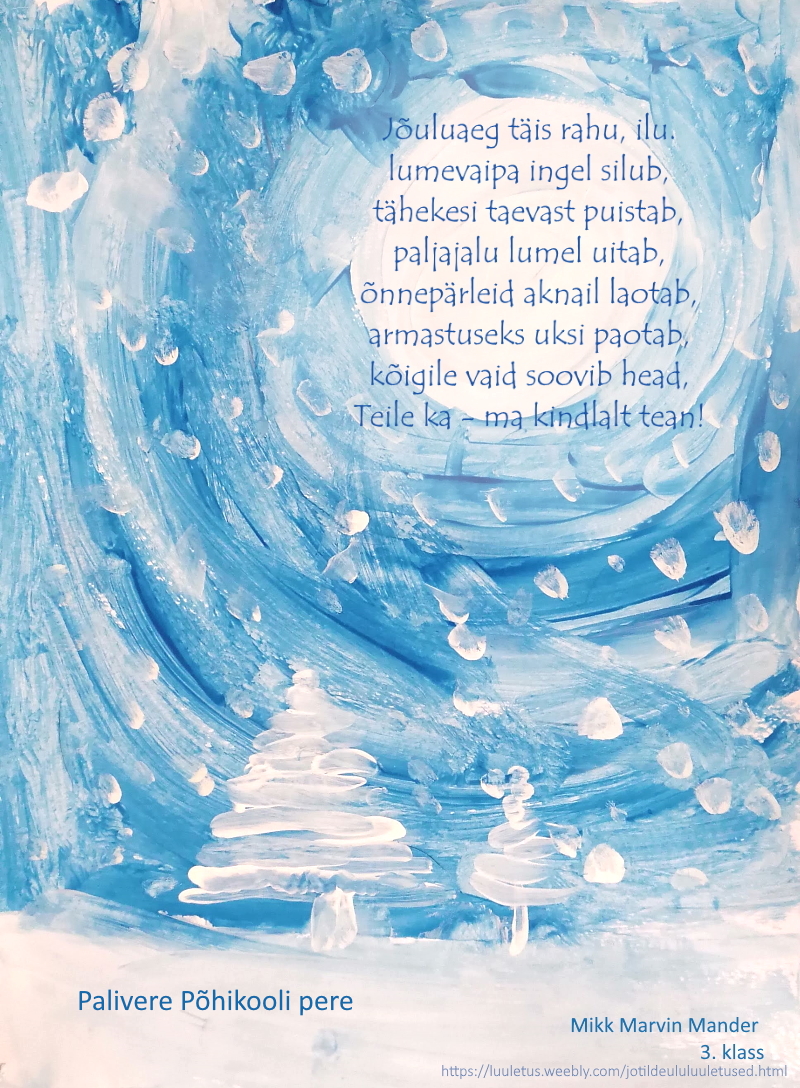 Jõuluaeg täis rahu, ilu.
lumevaipa ingel silub,
tähekesi taevast puistab,
paljajalu lumel uitab,
õnnepärleid aknail laotab,
armastuseks uksi paotab,
kõigile vaid soovib head,
Teile ka – ma kindlalt tean!
Palivere Põhikooli pere
Mikk Marvin Mander
3. klass
https://luuletus.weebly.com/jotildeululuuletused.html